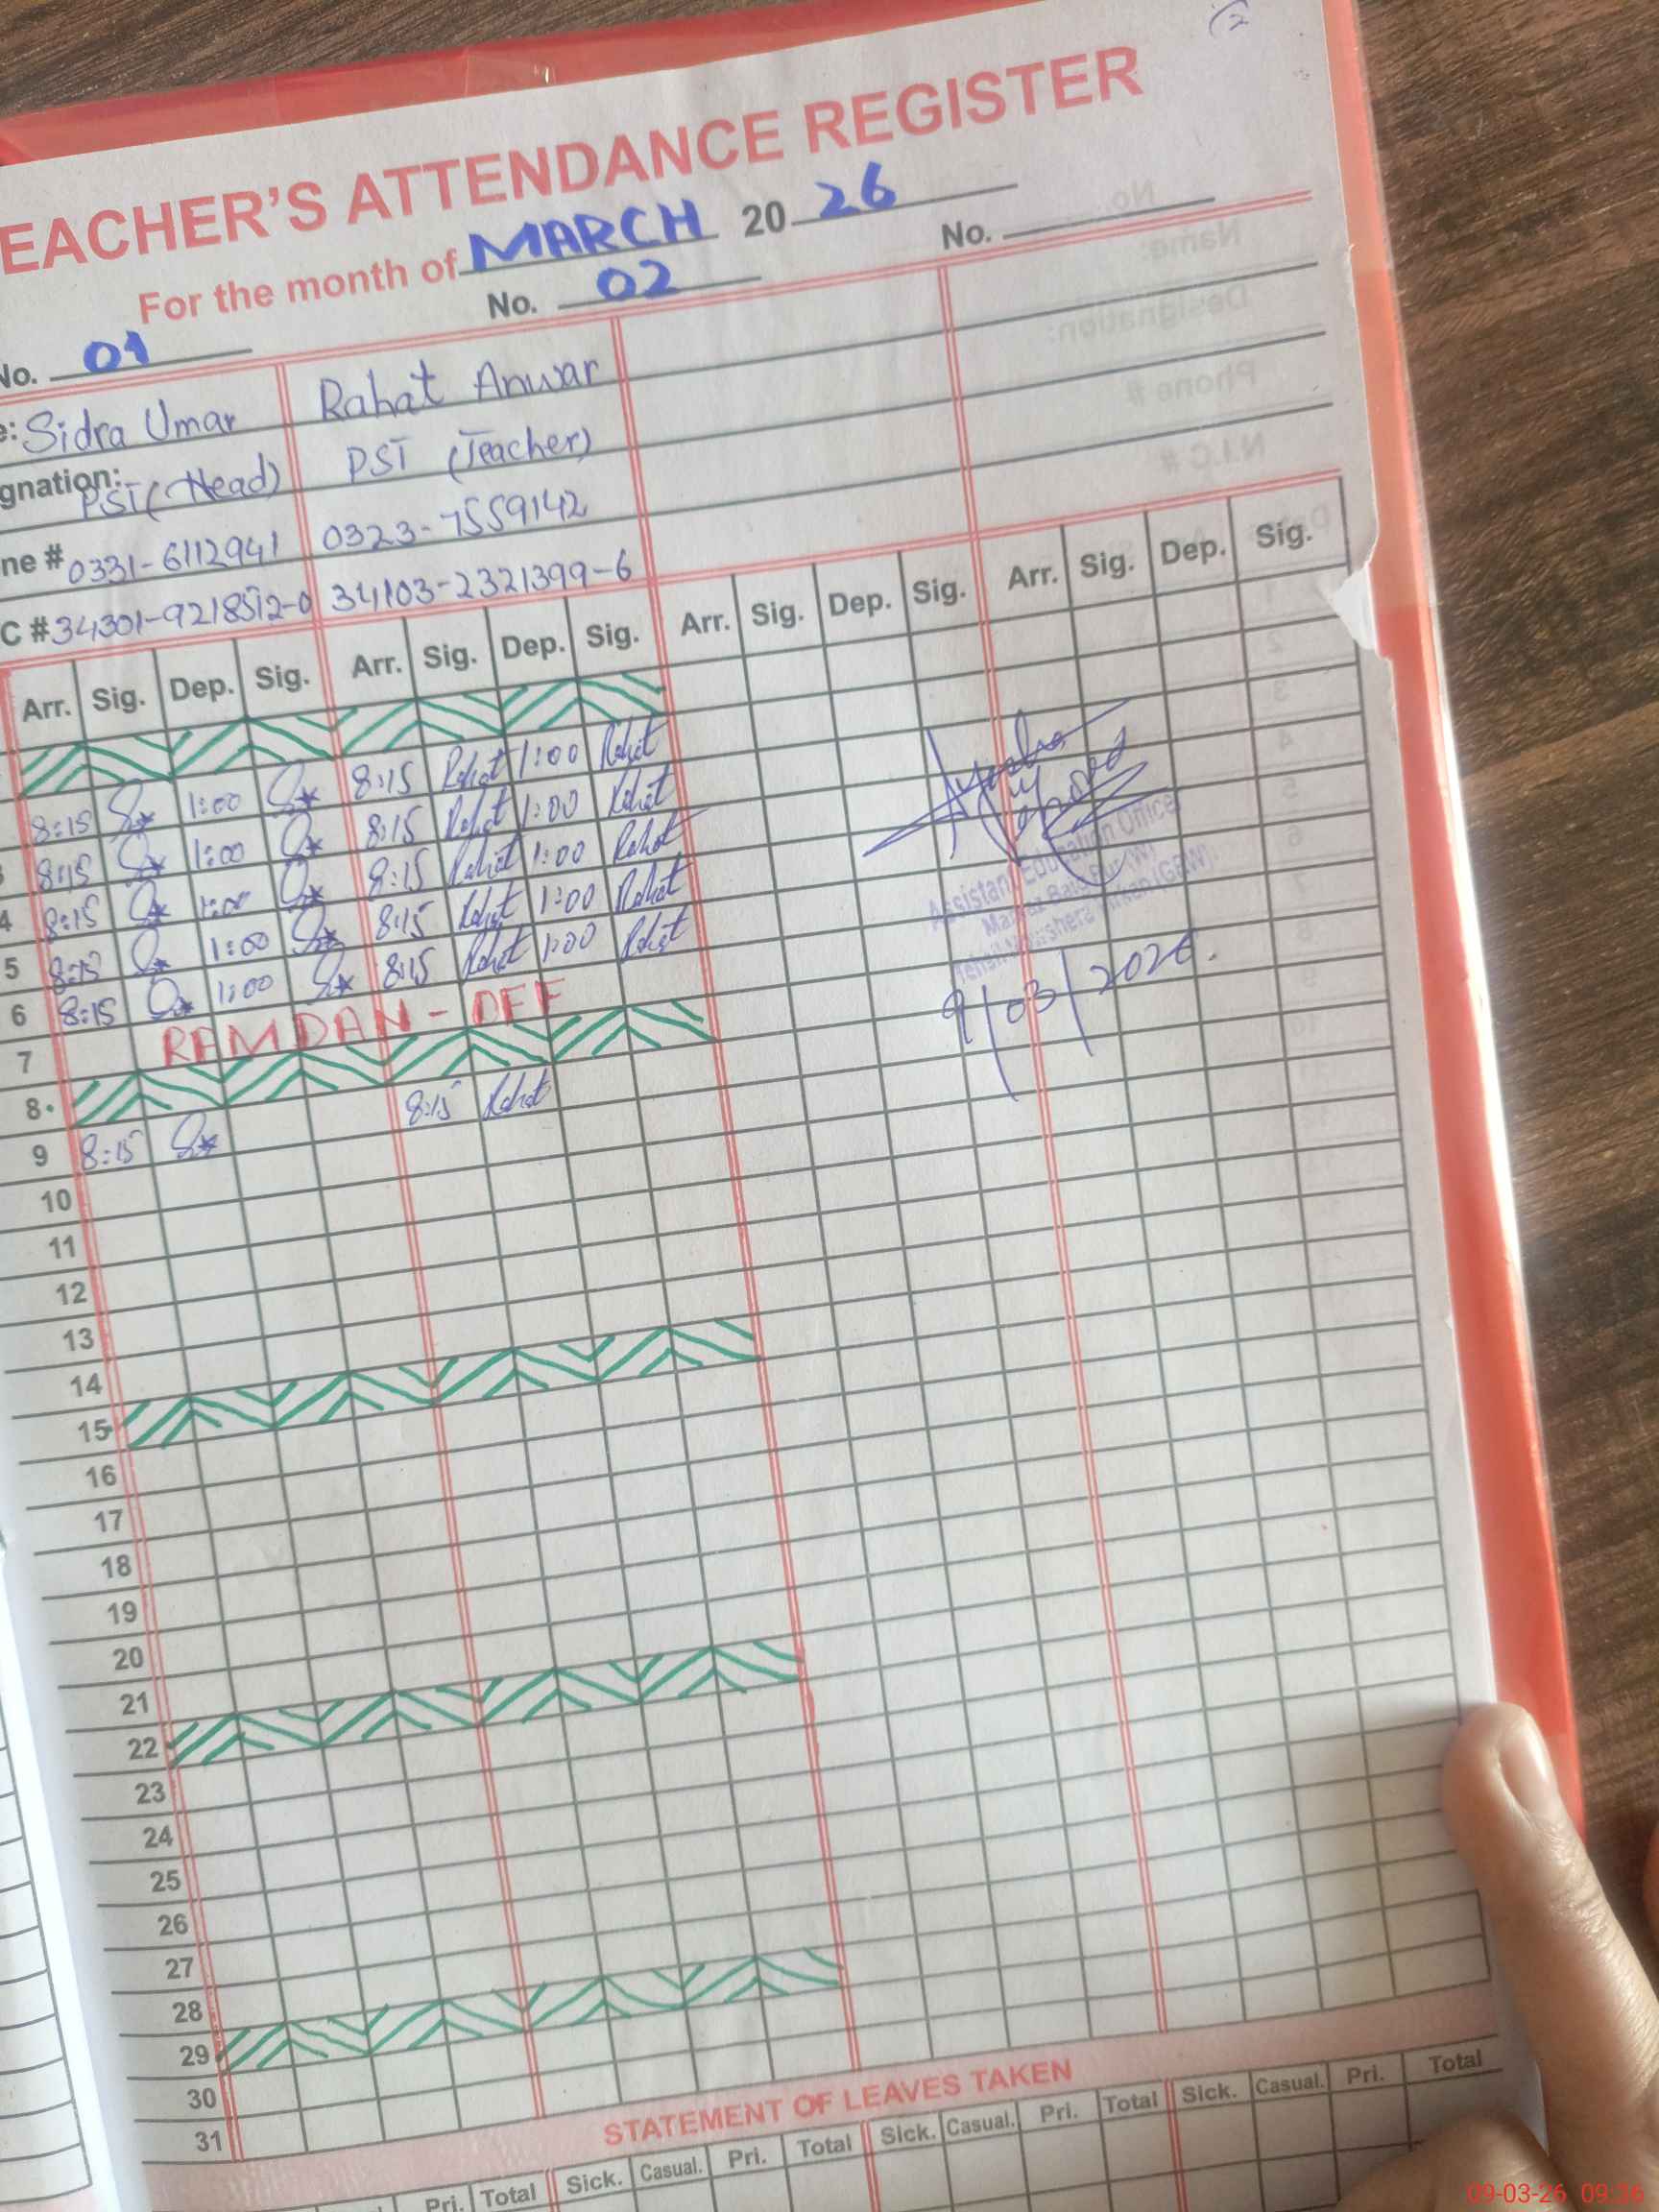 2
EACHER'S ATTENDANCE REGISTER
For the month of MARCH 20 26
No. 01 No. 02 No.
e: Sidra Umar Rahat Anwar
gnation: PST (Head) PST (Teacher)
ne # 0331-6112941 0323-7559142
C # 34301-9218512-0 34103-2321399-6
Arr. Sig. Dep. Sig. Arr. Sig. Dep. Sig. Arr. Sig. Dep. Sig. Arr. Sig. Dep. Sig.
8:15 1:00 8:15 Rahat 1:00 Rahat
3 8:15 1:00 8:15 Rahat 1:00 Rahat
4 8:15 1:00 8:15 Rahat 1:00 Rahat
5 8:15 1:00 8:15 Rahat 1:00 Rahat
6 8:15 1:00 8:15 Rahat 1:00 Rahat
7 RAMDAN - OFF
8
9 8:15 8:15 Rahat
10
11
12
13
14
15
16
17
18
19
20
21
22
23
24
25
26
27
28
29
30
31
Assistant Education Office
Markaz
Tehsil
9/03/2026.
STATEMENT OF LEAVES TAKEN
Pri. Total Sick. Casual. Pri. Total Sick. Casual. Pri. Total Sick. Casual. Pri. Total
09-03-26 09:36